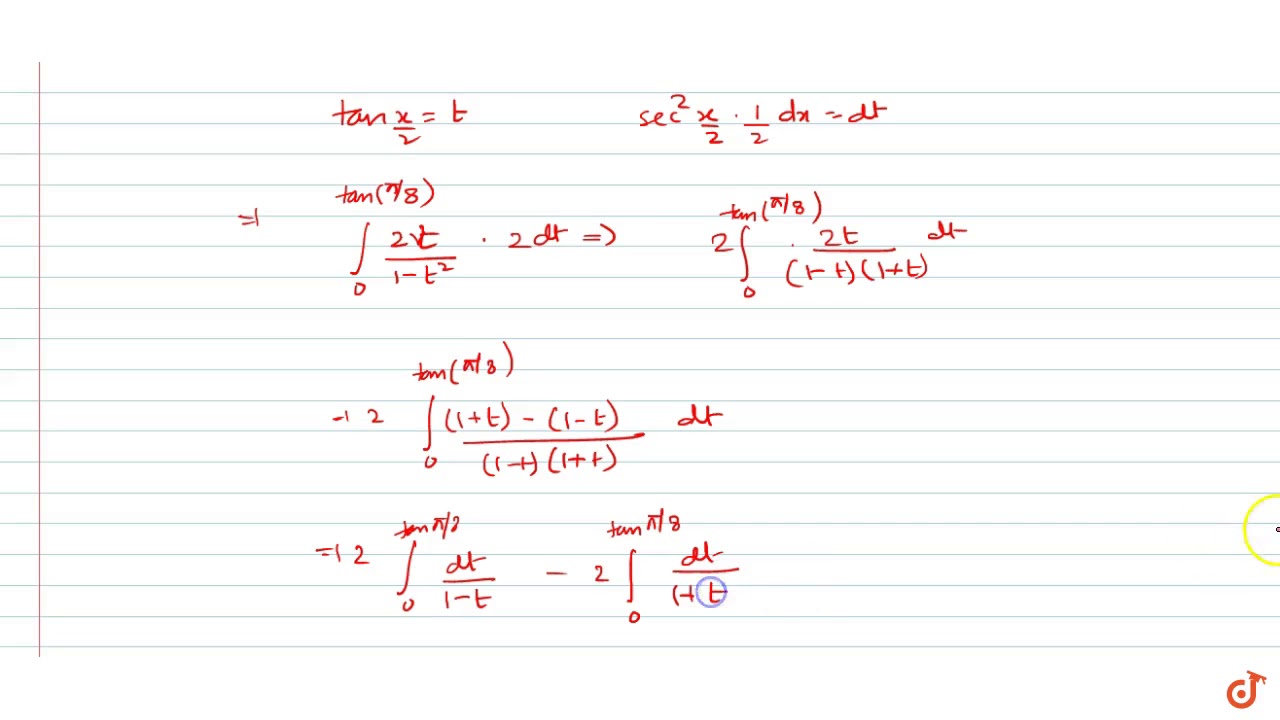 tan x/2 = t sec² x/2 · 1/2 dx = dt
⇒ ∫₀^tan(π/8) 2t/1-t² · 2dt ⇒ 2 ∫₀^tan(π/8) 2t/(1-t)(1+t) dt
⇒ 2 ∫₀^tan(π/8) (1+t) - (1-t)/(1-t)(1+t) dt
⇒ 2 ∫₀^tan π/8 dt/1-t - 2 ∫₀^tan π/8 dt/1+t